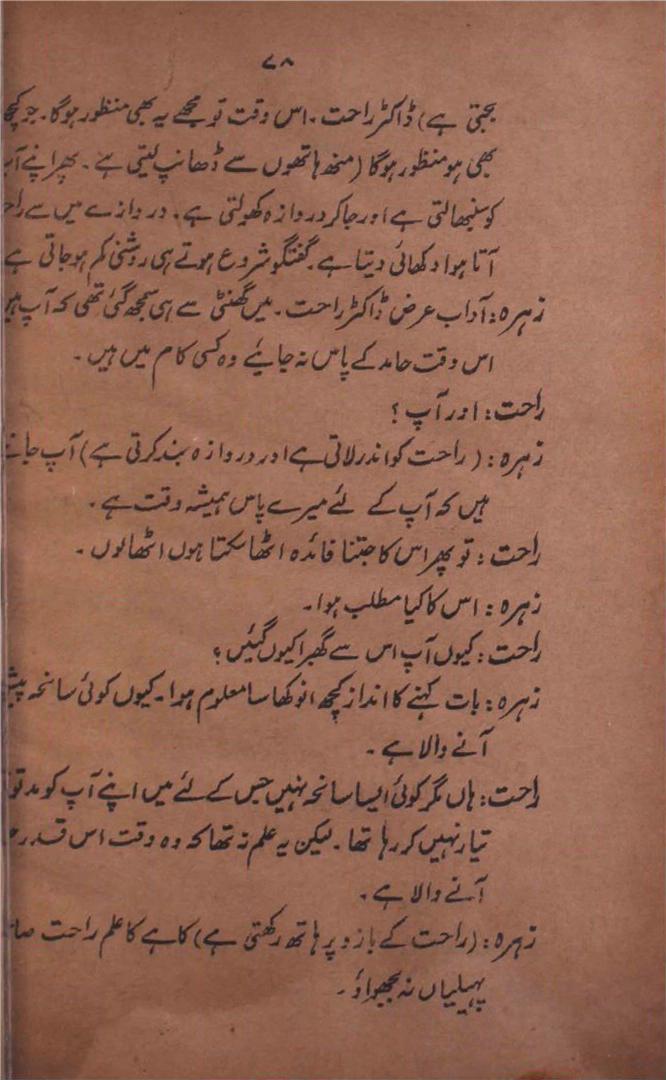 ۷۸
بجتی ہے) ڈاکٹر راحت۔ اس وقت تو مجھے یہ بھی منظور ہوگا۔ جو کچھ
بھی ہو منظور ہوگا (منھ ہاتھوں سے ڈھانپ لیتی ہے۔ پھر اپنے آپ
کو سنبھالتی ہے اور جا کر دروازہ کھولتی ہے۔ دروازے میں سے
آتا ہوا دکھائی دیتا ہے۔ گفتگو شروع ہوتے ہی روشنی کم ہو جاتی ہے
زہرہ: آداب عرض ڈاکٹر راحت۔ میں گھنٹی سے ہی سمجھ گئی تھی کہ آپ ہیں
اس وقت حامد کے پاس نہ جایئے وہ کسی کام میں ہیں۔
راحت: اور آپ؟
زہرہ: (راحت کو اندر لاتی ہے اور دروازہ بند کرتی ہے) آپ جانتے
ہیں کہ آپ کے لئے میرے پاس ہمیشہ وقت ہے۔
راحت: تو پھر اس کا جتنا فائدہ اٹھا سکتا ہوں اٹھالوں۔
زہرہ: اس کا کیا مطلب ہوا۔
راحت: کیوں آپ اس سے گھبرا کیوں گئیں؟
زہرہ: بات کہنے کا انداز کچھ انوکھا سا معلوم ہوا۔ کیوں کوئی سانحہ پیش
آنے والا ہے۔
راحت: ہاں مگر کوئی ایسا سانحہ نہیں جس کے لئے میں اپنے آپ کو مدتوں
تیار نہیں کر رہا تھا۔ لیکن یہ علم نہ تھا کہ وہ وقت اس قدر
آنے والا ہے۔
زہرہ: (راحت کے بازو پر ہاتھ رکھتی ہے) کاہے کا علم راحت
پہیلیاں نہ بجھواؤ۔